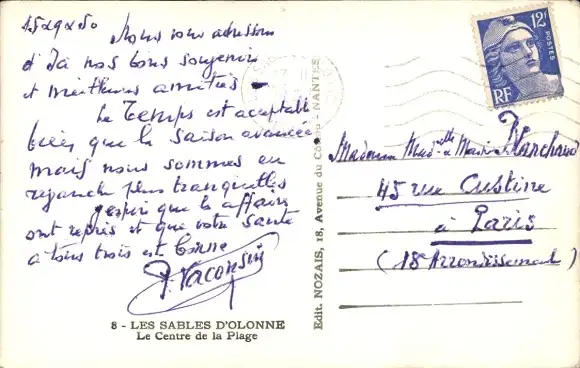 Nous vous adressons
d'Ici nos bons souvenirs
et meilleures amitiés -
Le Temps est acceptable
bien que la saison avancée
mais nous sommes en
revanche plus tranquilles
J'espère que les affaires
ont repris et que votre santé
à tous trois est bonne
8 - LES SABLES D'OLONNE
Le Centre de la Plage
Edit. NOZAIS, 18, Avenue du - NANTES
12F
POSTES
RF
Madame
45 rue Custine
à Paris
(18e Arrondissement)